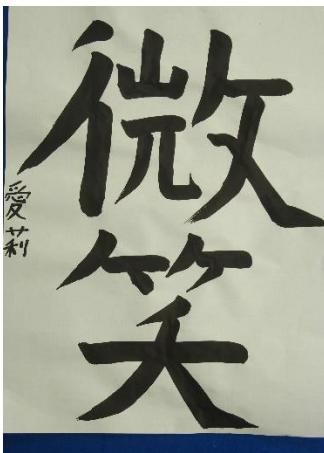 微笑
愛莉